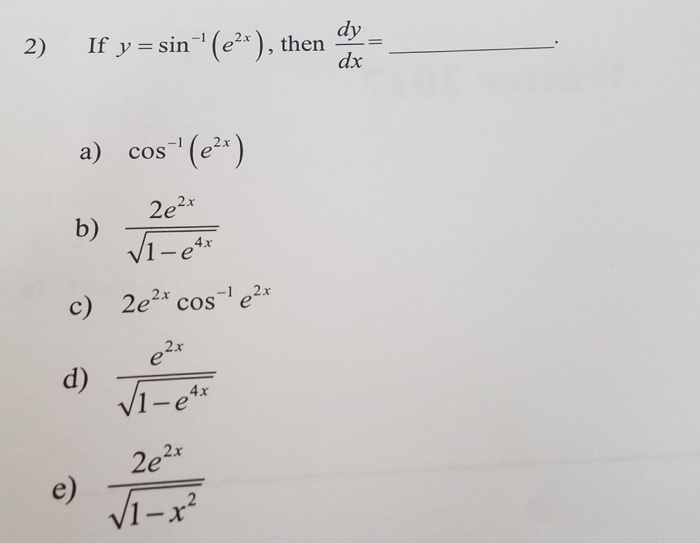 2) If y = sin⁻¹(e²ˣ), then dy/dx = __________.
a) cos⁻¹(e²ˣ)
b) 2e²ˣ/√(1−e⁴ˣ)
c) 2e²ˣ cos⁻¹ e²ˣ
d) e²ˣ/√(1−e⁴ˣ)
e) 2e²ˣ/√(1−x²)